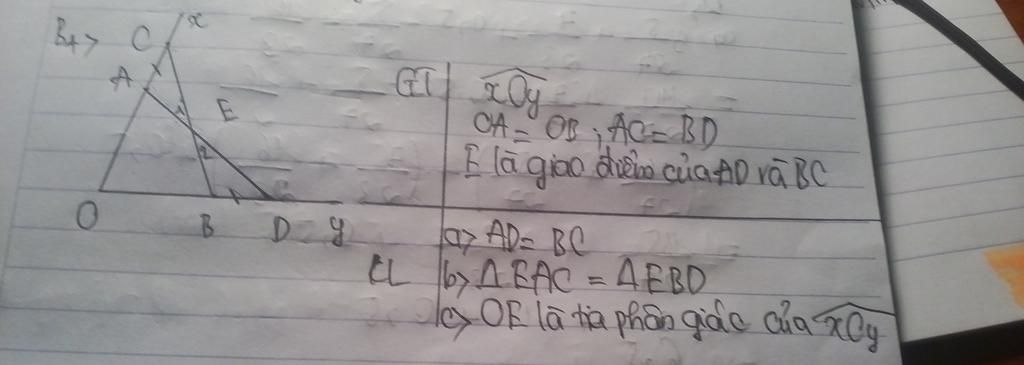 B4>
x
C
A
E
2
O
B
D
y
GT
xOy
OA = OB ; AC = BD
E là giao điểm của AD và BC
KL
a> AD = BC
b> ΔEAC = ΔEBD
c> OE là tia phân giác của xOy